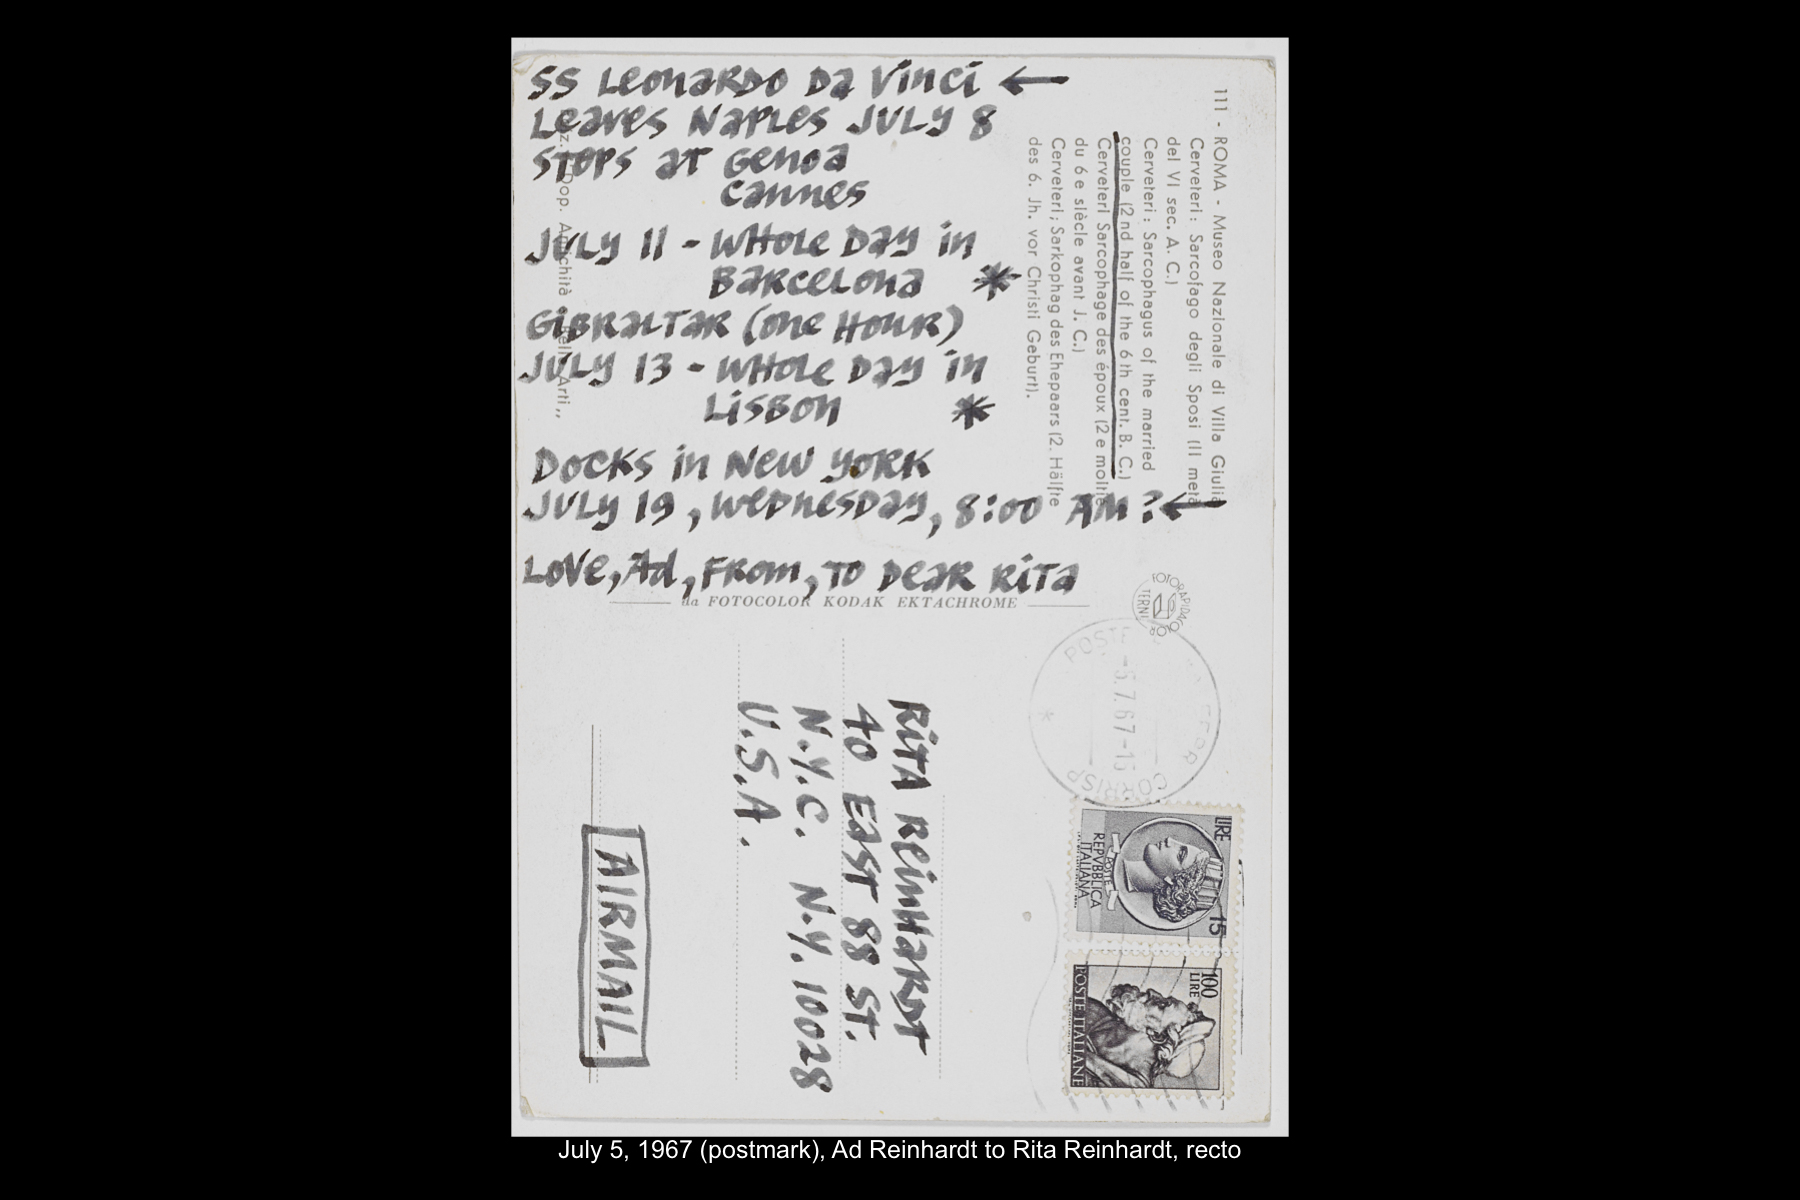 SS Leonardo Da Vinci ←
Leaves Naples July 8
Stops at Genoa
Cannes
July 11 - Whole Day in
Barcelona *
Gibraltar (one Hour)
July 13 - Whole Day in
Lisbon *
Docks in New York
July 19, Wednesday, 8:00 AM ? ←
Love, Ad, From, to Dear Rita
111 - ROMA - Museo Nazionale di Villa Giulia
Cerveteri: Sarcofago degli Sposi (II metà
del VI sec. A. C.)
Cerveteri: Sarcophagus of the married
couple (2 nd half of the 6 th cent. B. C.)
Cerveteri Sarcophage des époux (2 e moitié
du 6 e siècle avant J. C.)
Cerveteri; Sarkophag des Ehepaars (2. Hälfte
des 6. Jh. vor Christi Geburt).
Dop. Antichità e Belle Arti,,
da FOTOCOLOR KODAK EKTACHROME
FOTORAPIDACOLOR
TERNI
POSTE
CORRISP
7.67-15
LIRE 15
POSTE
REPVBBLICA
ITALIANA
100
LIRE
POSTE ITALIANE
Rita Reinhardt
40 East 88 St.
N.Y.C. N.Y. 10028
U.S.A.
AIRMAIL
July 5, 1967 (postmark), Ad Reinhardt to Rita Reinhardt, recto